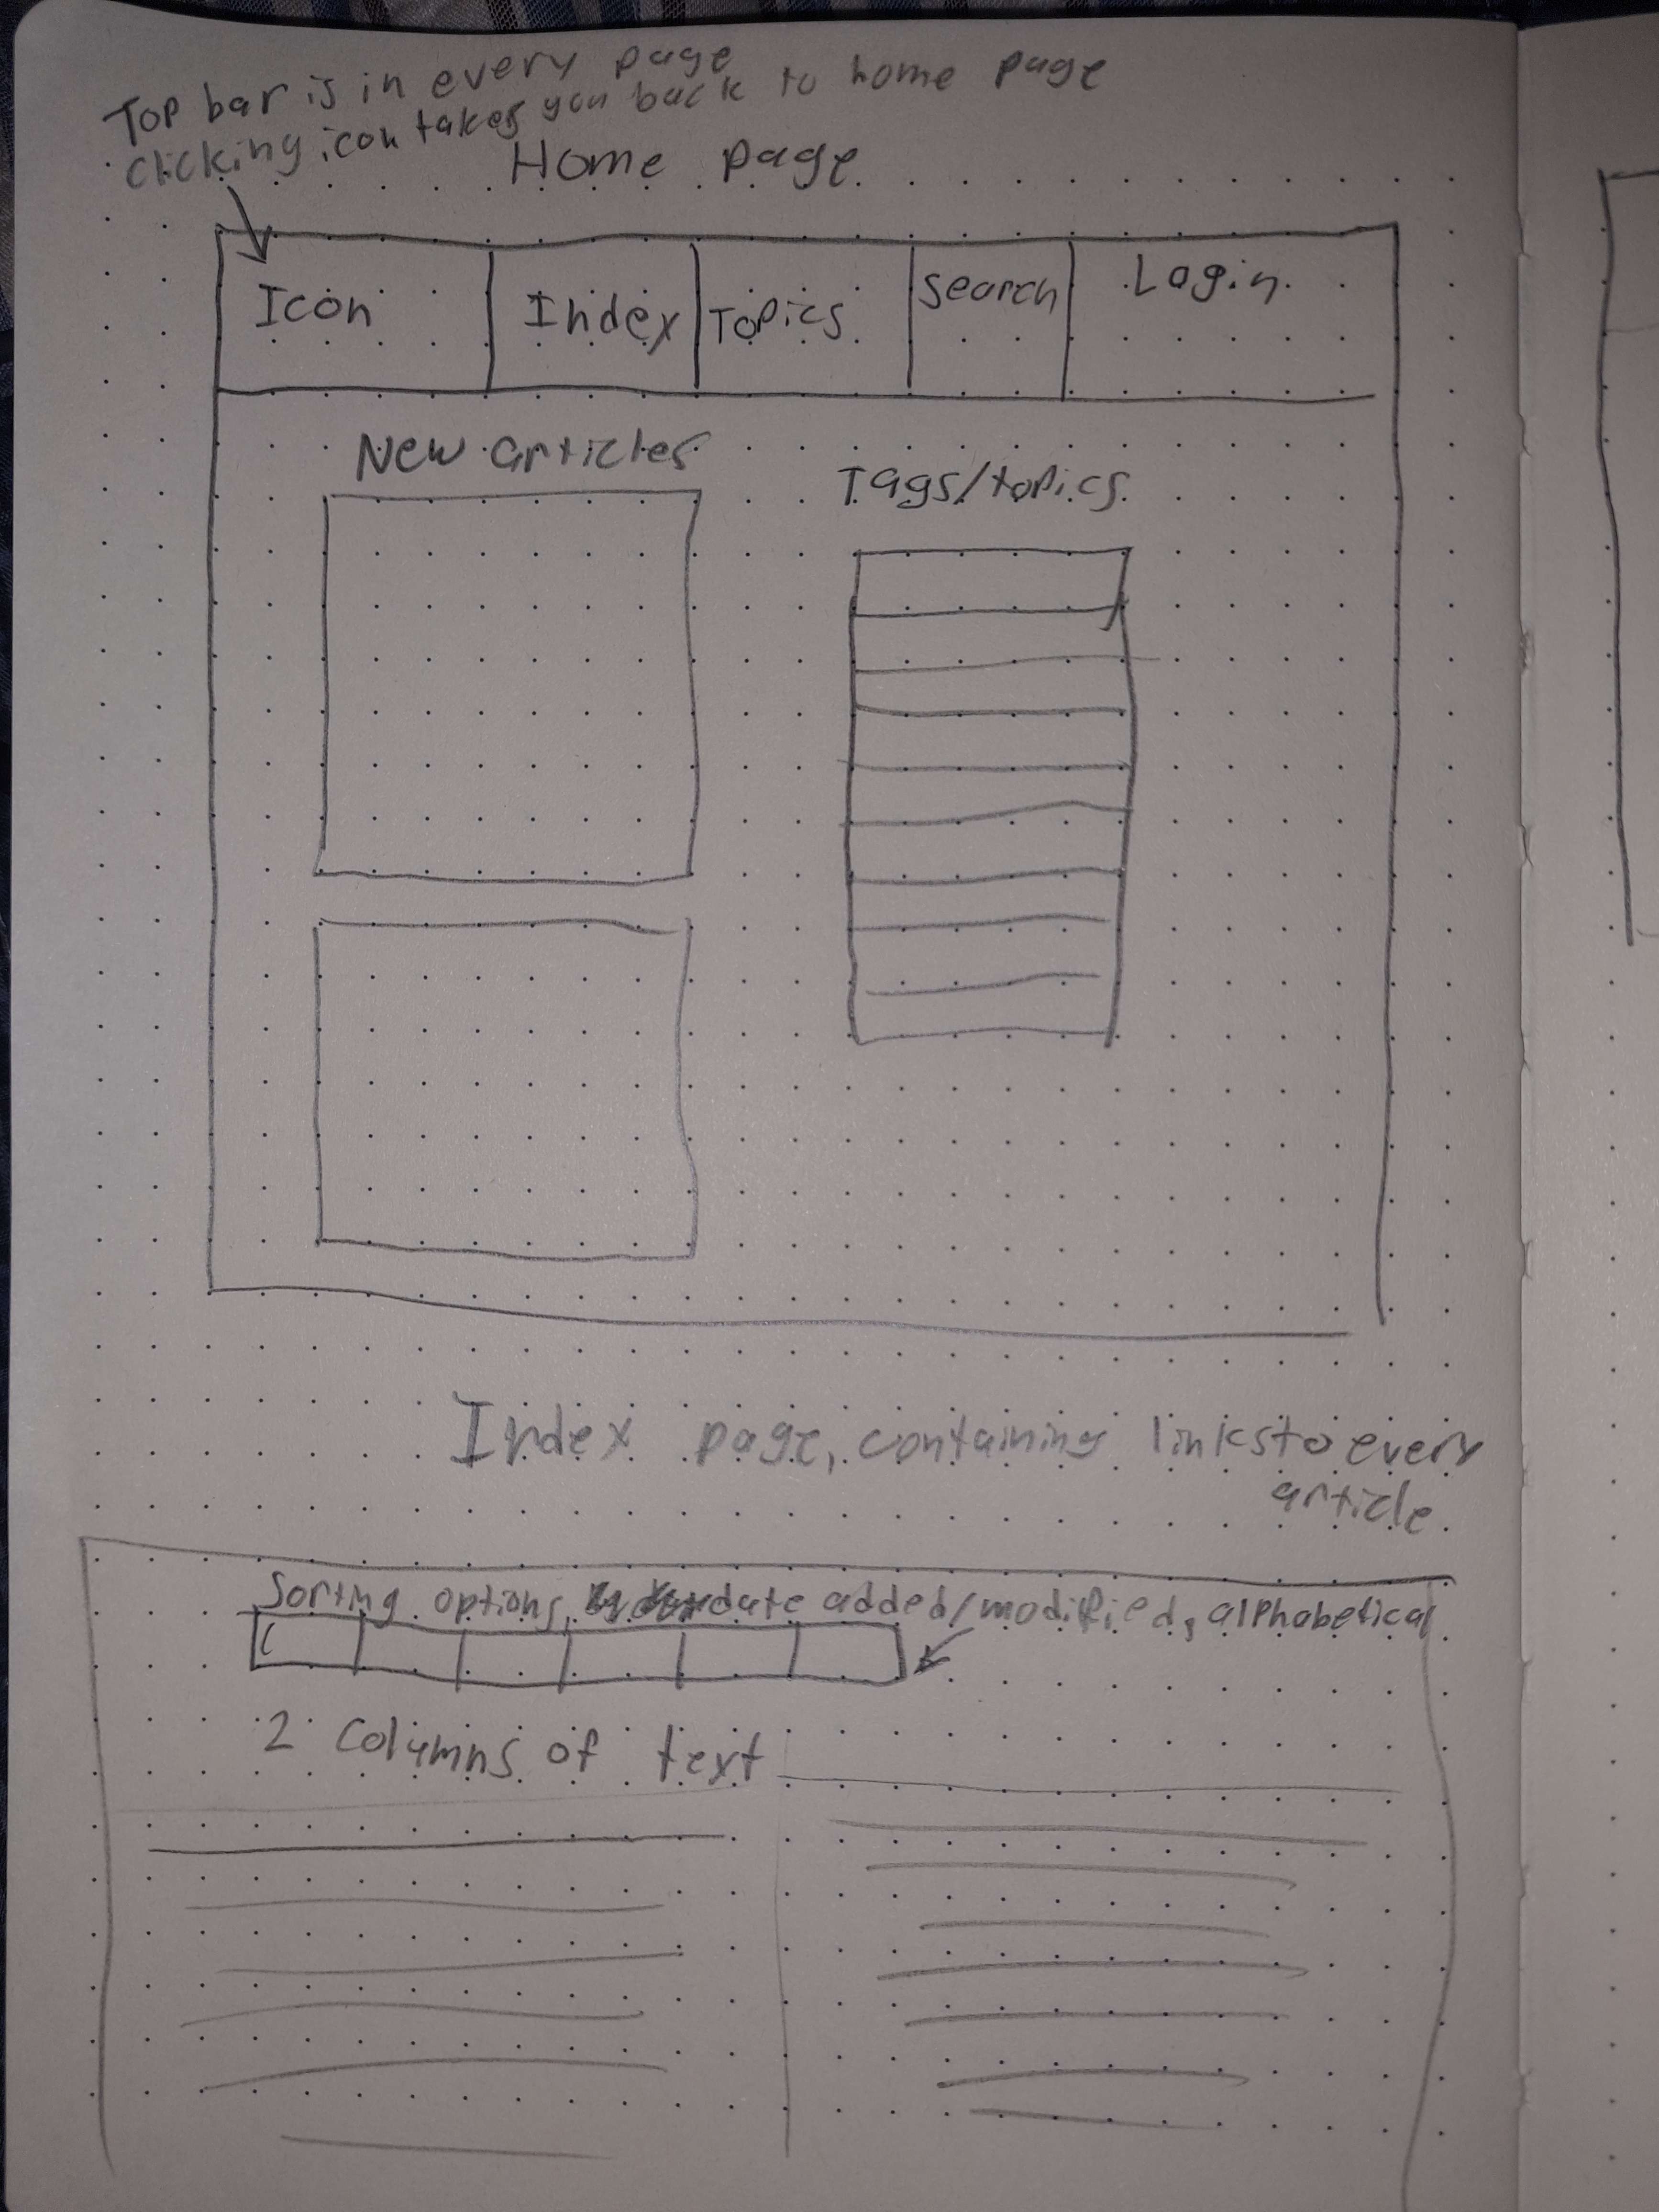 Top bar is in every page
clicking icon takes you back to home page
Home page
Icon
Index
Topics
Search
Login
New articles
Tags/topics
Index page, containing links to every
article.
Sorting options, date added/modified, alphabetical
2 columns of text